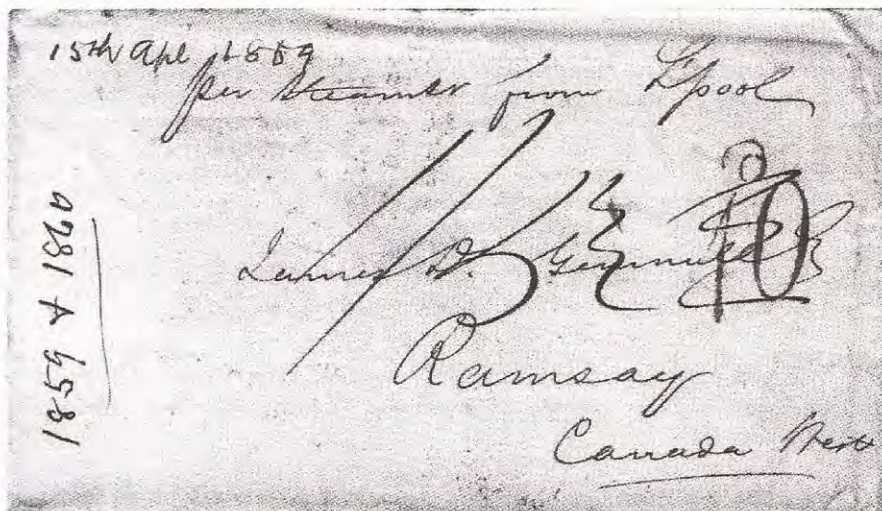 15th Apl 1859
per Steamer from L'pool
10
James D. Gemmill
Ramsay
Canada West
1859 & 1826